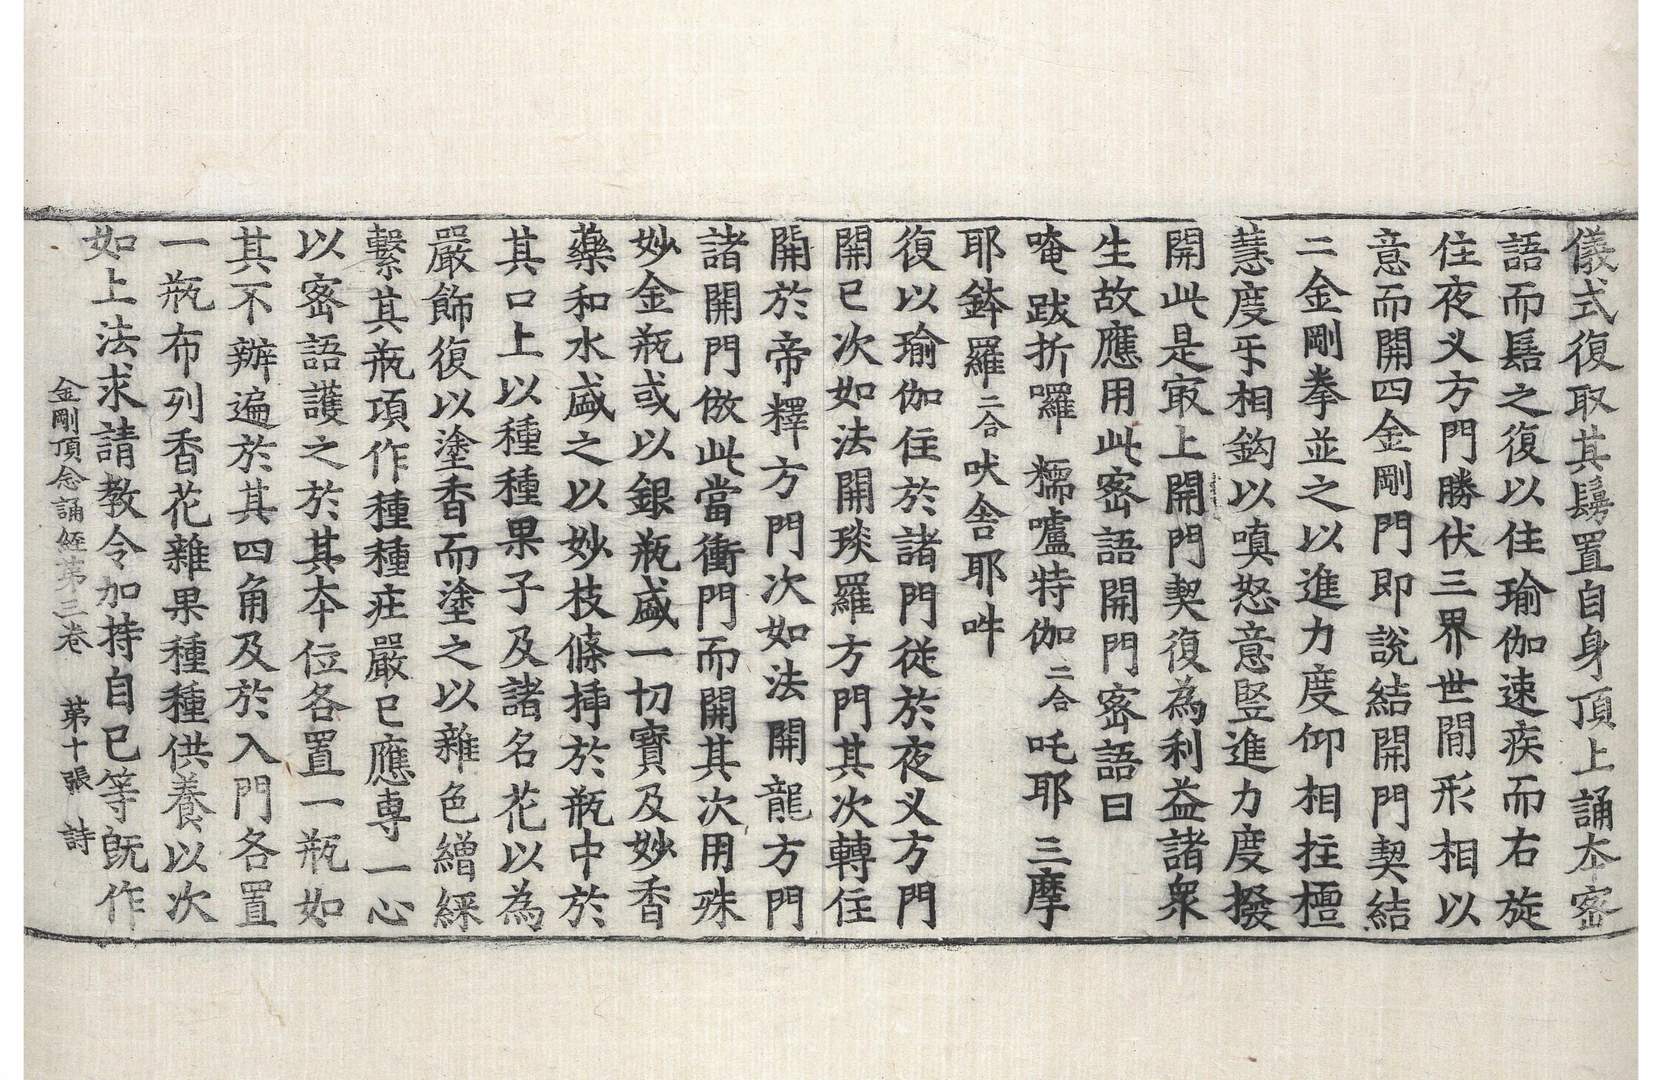 儀式復取其鬘置自身頂上誦夲宻
語而髻之復以住瑜伽速疾而右旋
住夜叉方門勝伏三界世間形相以
意而開四金剛門即說結開門契結
二金剛拳並之以進力度仰相拄檀
慧度㸦相鈎以嗔怒意竪進力度撥
開此是㝡上開門契復為利益諸衆
生故應用此宻語開門宻語曰
唵 跋折囉 糯嚧特伽二合 吒耶 三摩
耶鉢羅二合吠舍耶吽
復以瑜伽住於諸門從於夜叉方門
開已次如法開琰羅方門其次轉住
開於帝釋方門次如法開龍方門
諸開門倣此當衝門而開其次用殊
妙金瓶或以銀瓶盛一切寶及妙香
藥和水盛之以妙枝條揷於瓶中於
其口上以種種果子及諸名花以為
嚴飾復以塗香而塗之以雜色繒綵
繫其瓶項作種種庄嚴已應專一心
以宻語護之於其夲位各置一瓶如
其不辦遍於其四角及於入門各置
一瓶布列香花雜果種種供養以次
如上法求請教令加持自已等旣作
金剛頂念誦經第三卷 第十張 詩